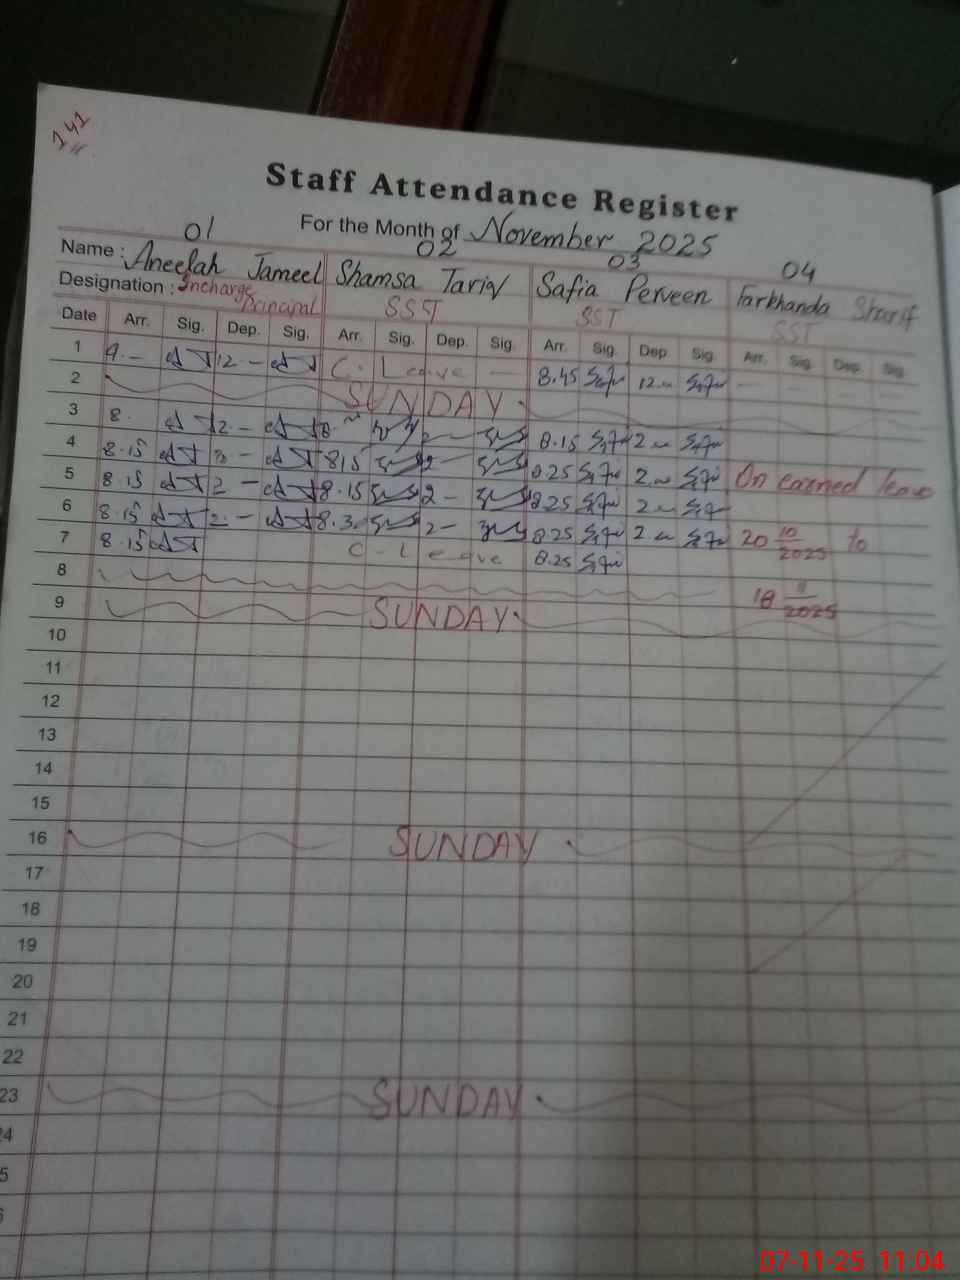 141
Staff Attendance Register
For the Month of November 2025
01 02 03 04
Name : Aneelah Jameel Shamsa Tariq Safia Perveen Farkhanda Sharif
Designation : Incharge Principal SST SST SST
Date Arr. Sig. Dep. Sig. Arr. Sig. Dep. Sig. Arr. Sig. Dep. Sig. Arr. Sig. Dep. Sig.
1 9.- 12.- C. Leave 8.45 12
2 SUNDAY
3 8. 2.- 8. 2- 8.15 2
4 8.15 815 2- 8.25 2
5 8.15 2- 8.15 2- 8.25 2 On earned leave
6 8.15 2.- 8.3 2- 8.25 2 20 10/2025 to
7 8.15 C-Leave 8.25
8 18 11/2025
9 SUNDAY
10
11
12
13
14
15
16 SUNDAY
17
18
19
20
21
22
23 SUNDAY
4
5
07-11-25 11:04